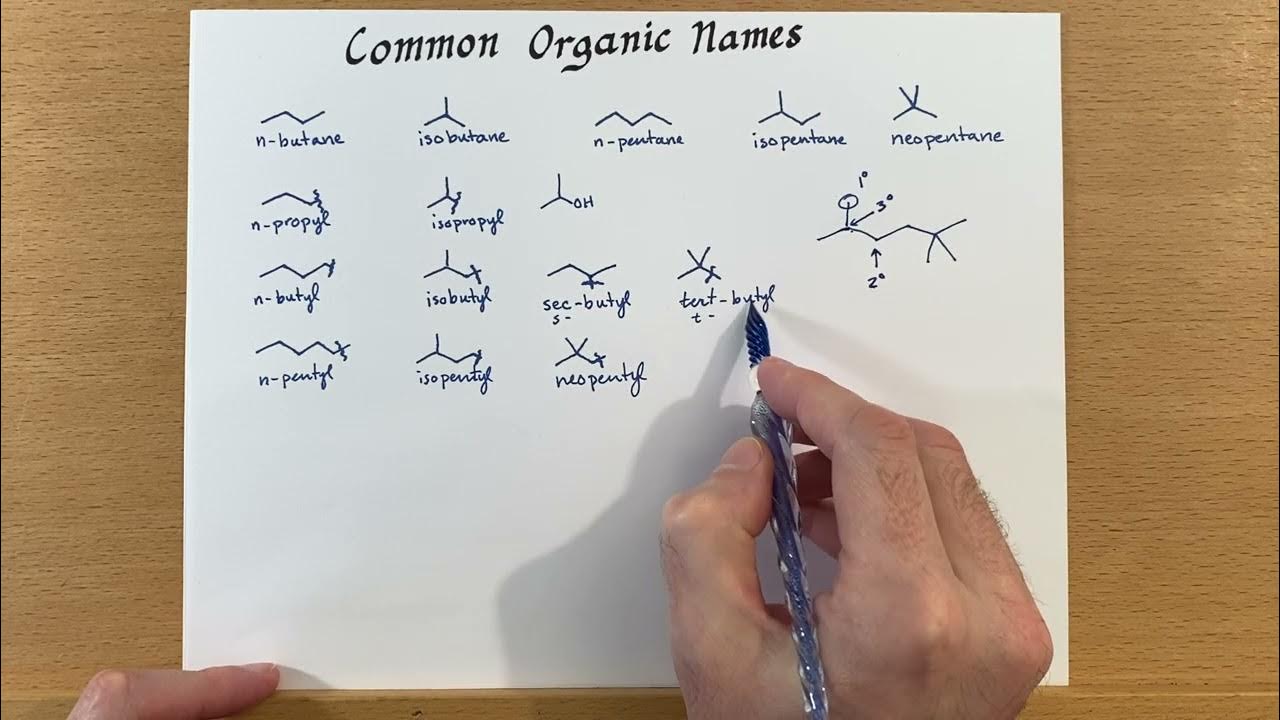 Common Organic Names
n-butane isobutane n-pentane isopentane neopentane
1°
3°
OH
n-propyl isopropyl
2°
n-butyl isobutyl sec-butyl tert-butyl
s- t-
n-pentyl isopentyl neopentyl